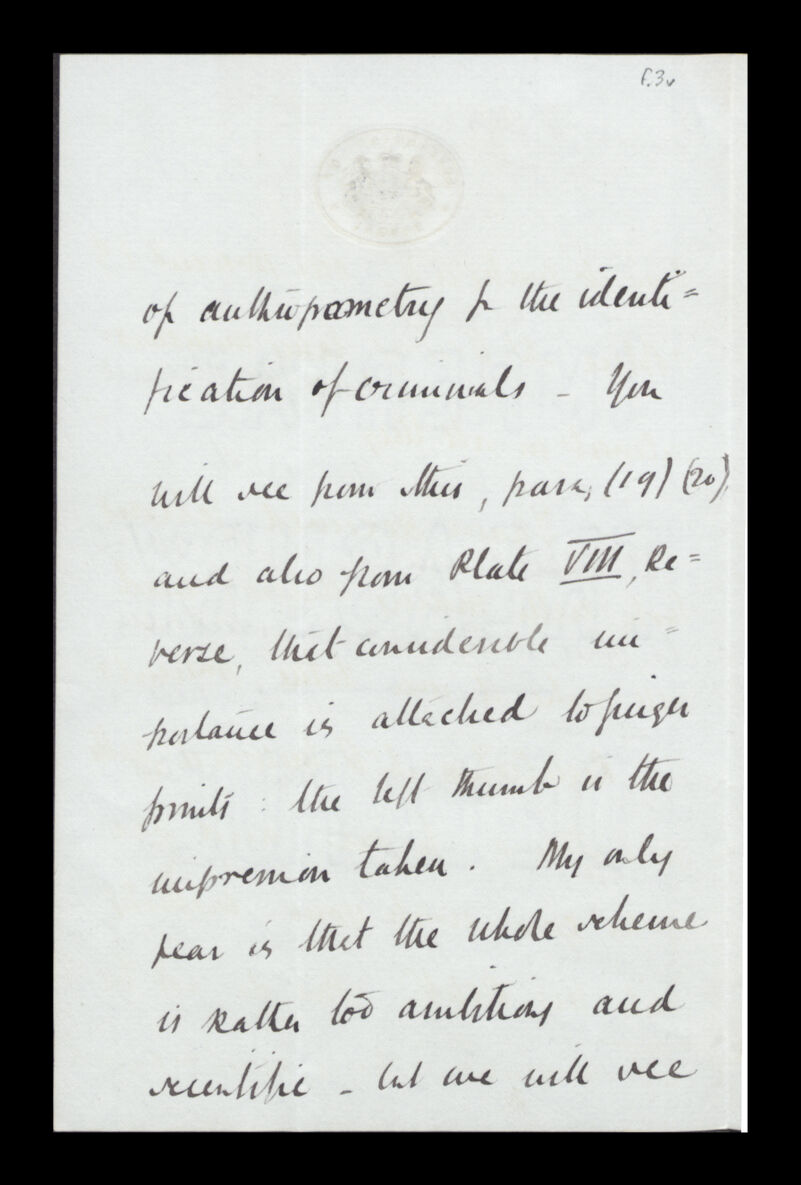 f.3v
of anthropometry for the identi=
fication of criminals - You
will see from this, para, (19) (20),
and also from Plate VIII, Re=
verse, that considerable im=
portance is attached to finger
prints : the left thumb is the
impression taken. My only
fear is that the whole scheme
is rather too ambitious and
scientific - but we will see